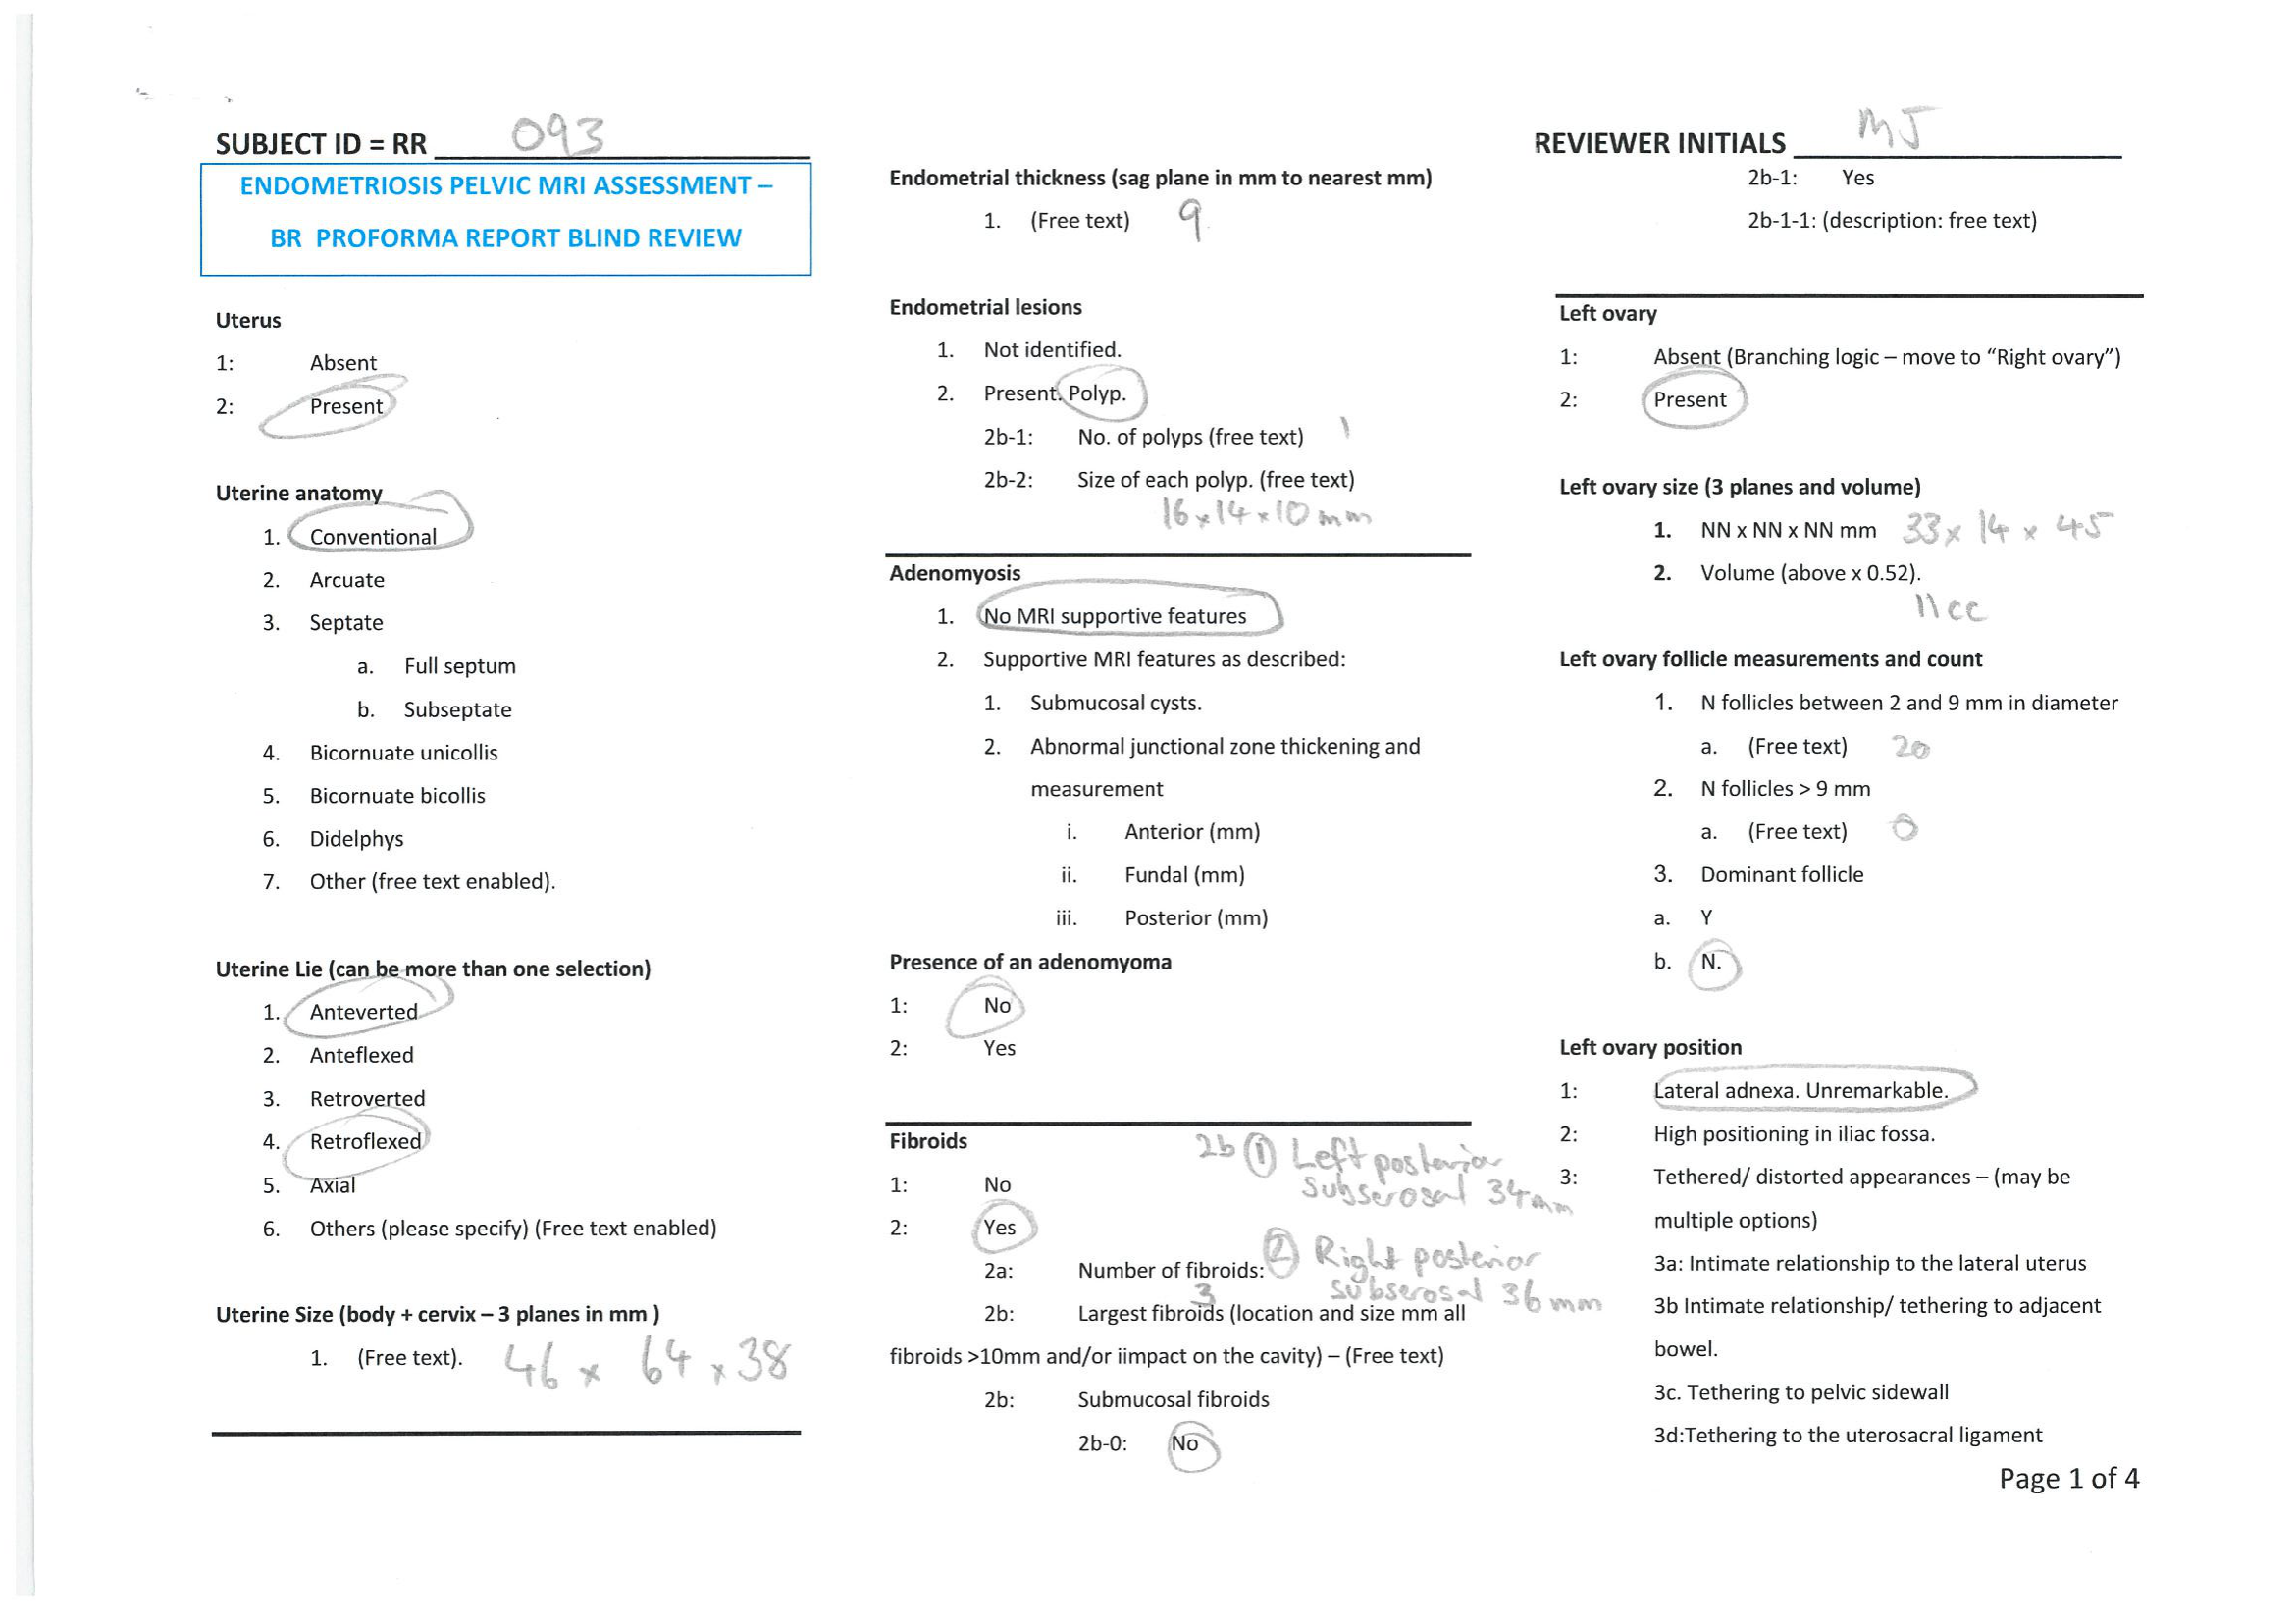 SUBJECT ID = RR 093
ENDOMETRIOSIS PELVIC MRI ASSESSMENT –
BR PROFORMA REPORT BLIND REVIEW
Uterus
1: Absent
2: Present
Uterine anatomy
1. Conventional
2. Arcuate
3. Septate
a. Full septum
b. Subseptate
4. Bicornuate unicollis
5. Bicornuate bicollis
6. Didelphys
7. Other (free text enabled).
Uterine Lie (can be more than one selection)
1. Anteverted
2. Anteflexed
3. Retroverted
4. Retroflexed
5. Axial
6. Others (please specify) (Free text enabled)
Uterine Size (body + cervix – 3 planes in mm )
1. (Free text). 46 x 64 x 38
Endometrial thickness (sag plane in mm to nearest mm)
1. (Free text) 9
Endometrial lesions
1. Not identified.
2. Present. Polyp.
2b-1: No. of polyps (free text) 1
2b-2: Size of each polyp. (free text)
16 x 14 x 10 mm
Adenomyosis
1. No MRI supportive features
2. Supportive MRI features as described:
1. Submucosal cysts.
2. Abnormal junctional zone thickening and
measurement
i. Anterior (mm)
ii. Fundal (mm)
iii. Posterior (mm)
Presence of an adenomyoma
1: No
2: Yes
Fibroids
2b ① Left posterior
subserosal 34mm
1: No
2: Yes
② Right posterior
subserosal 36mm
2a: Number of fibroids:
3
2b: Largest fibroids (location and size mm all
fibroids >10mm and/or iimpact on the cavity) – (Free text)
2b: Submucosal fibroids
2b-0: No
REVIEWER INITIALS MJ
2b-1: Yes
2b-1-1: (description: free text)
Left ovary
1: Absent (Branching logic – move to “Right ovary”)
2: Present
Left ovary size (3 planes and volume)
1. NN x NN x NN mm 33 x 14 x 45
2. Volume (above x 0.52).
11cc
Left ovary follicle measurements and count
1. N follicles between 2 and 9 mm in diameter
a. (Free text) 20
2. N follicles > 9 mm
a. (Free text) 0
3. Dominant follicle
a. Y
b. N.
Left ovary position
1: Lateral adnexa. Unremarkable.
2: High positioning in iliac fossa.
3: Tethered/ distorted appearances – (may be
multiple options)
3a: Intimate relationship to the lateral uterus
3b Intimate relationship/ tethering to adjacent
bowel.
3c. Tethering to pelvic sidewall
3d:Tethering to the uterosacral ligament
Page 1 of 4